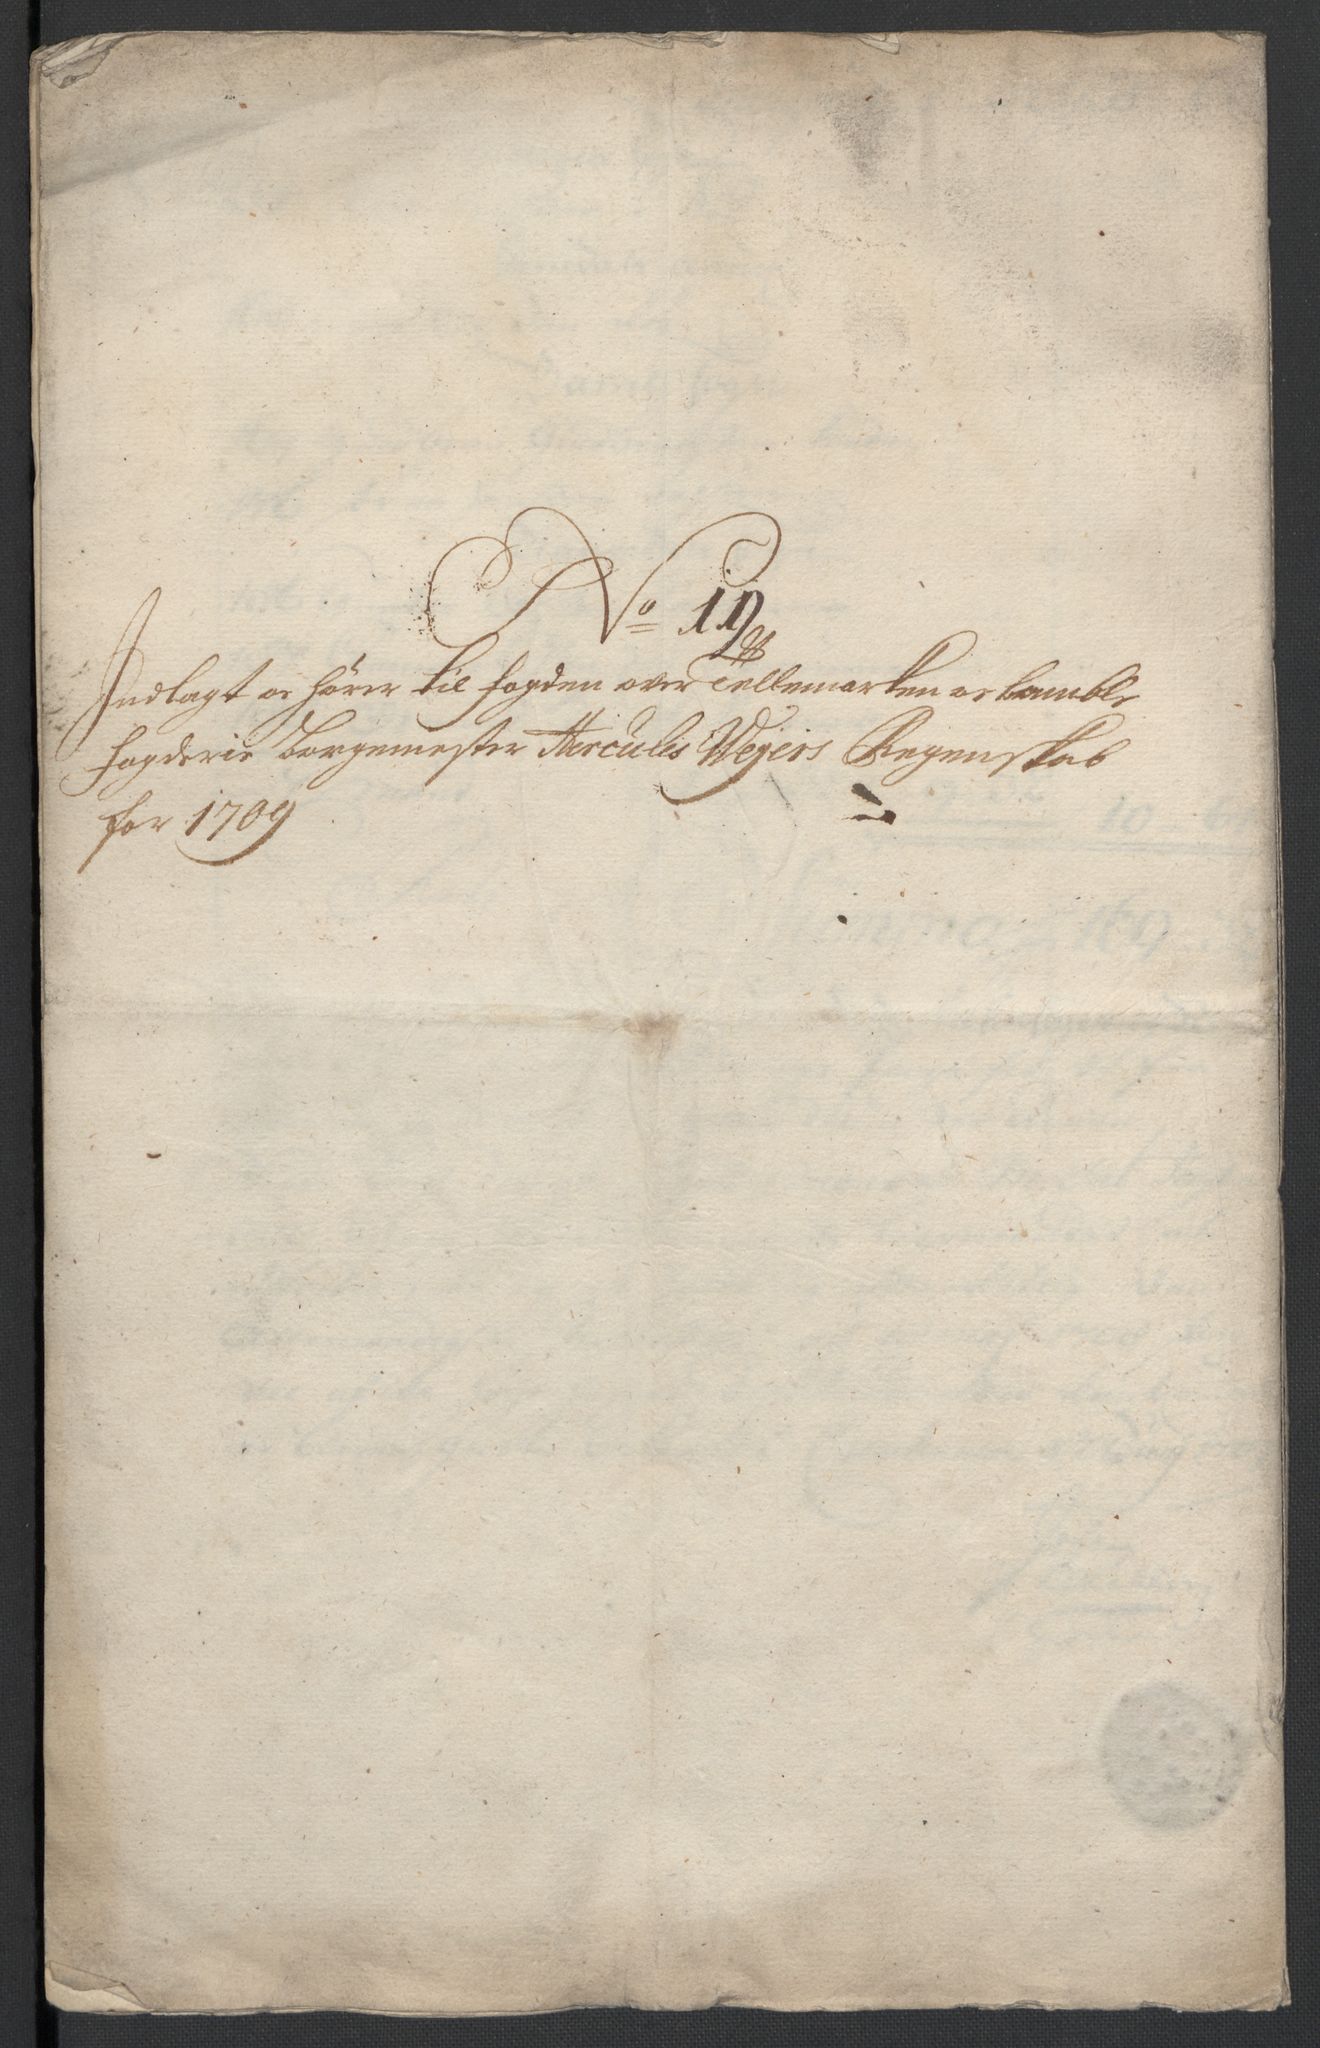 No 19
Indlagt oc hører til fogden over Tellemarken oc bamble
fogderie borgemester Herculis Wejers Regenskab
for 1709